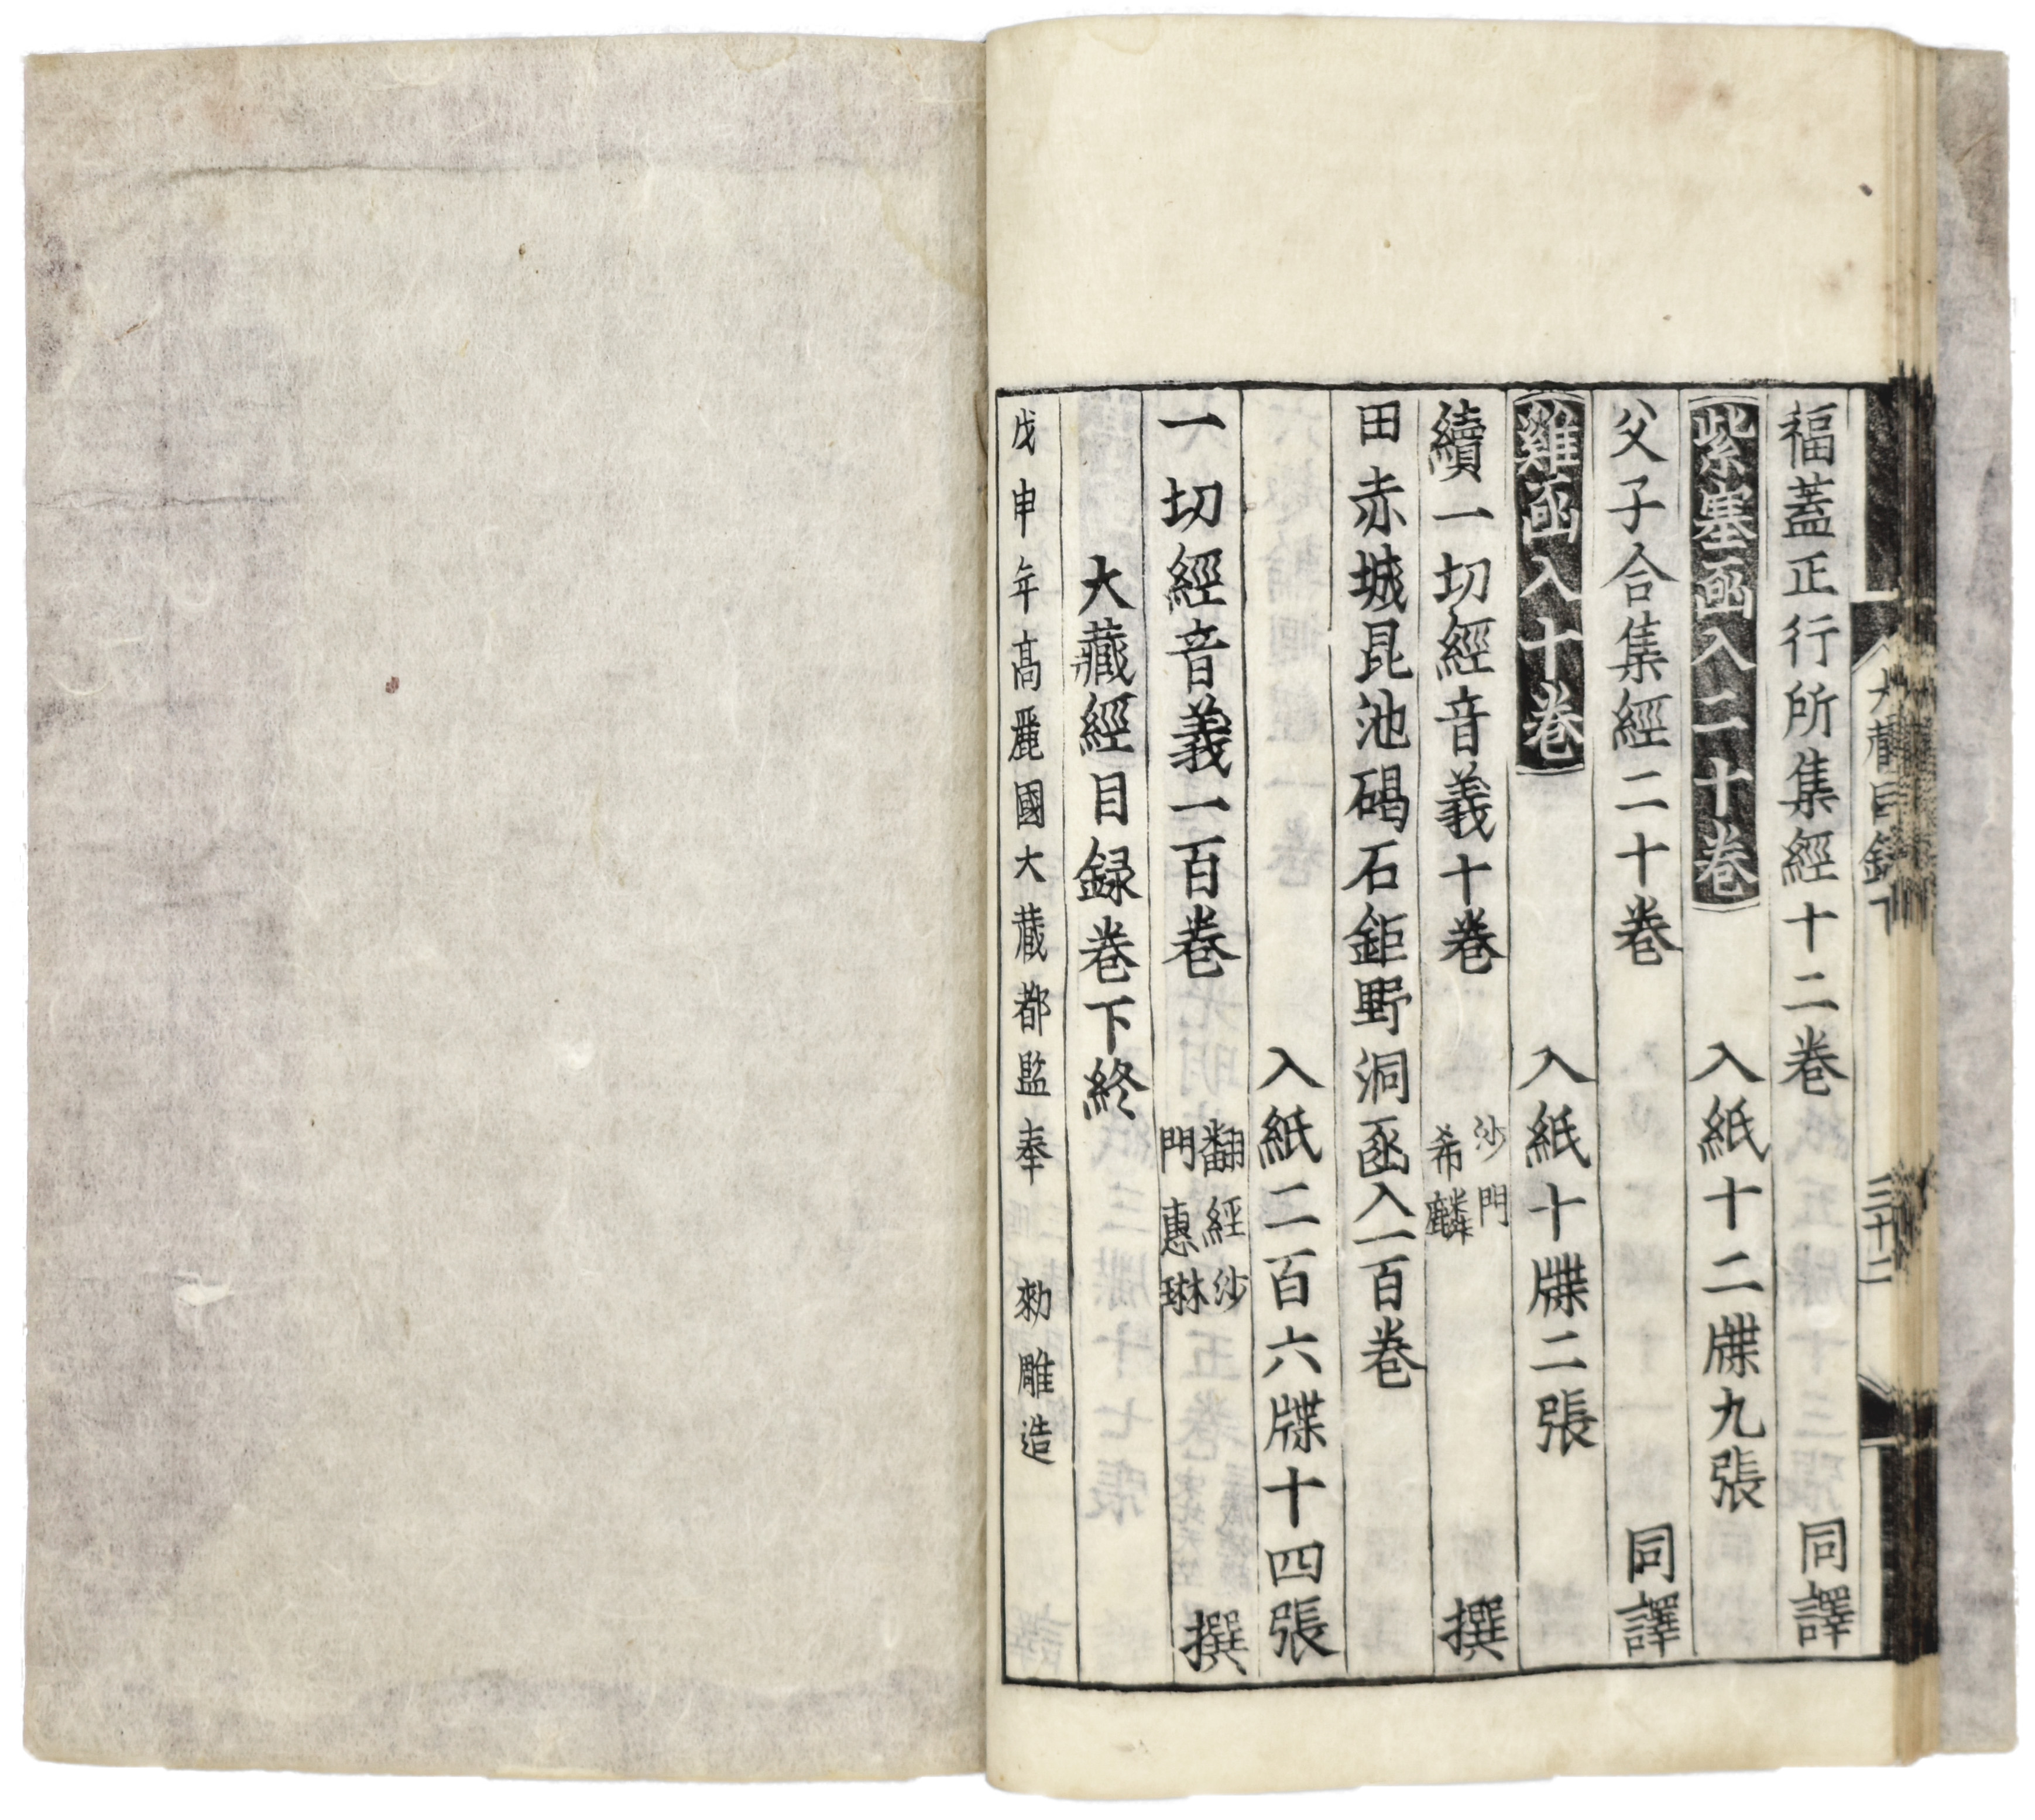 福蓋正行所集經十二卷 同譯
紫塞函入二十卷 入紙十二牒九張
父子合集經二十卷 同譯
雞函入十卷 入紙十牒二張
續一切經音義十卷 沙門希麟 撰
田赤城昆池碣石鉅野洞函入一百卷
入紙二百六牒十四張
一切經音義一百卷 翻經沙門惠琳 撰
大藏經目録卷下終
戊申年高麗國大藏都監奉 勑雕造